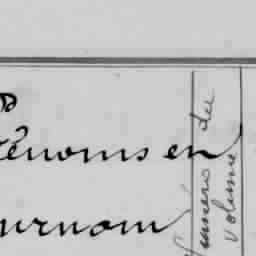 Prénoms en
surnom
Numéro du
volume